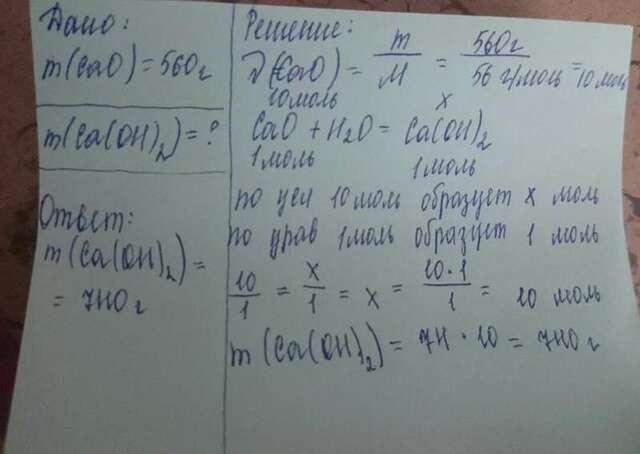 Дано:
m(CaO) = 560г
m(Ca(OH)₂) = ?
Ответ:
m(Ca(OH)₂) =
= 740г
Решение:
ν(CaO) = m/M = 560г/56 г/моль = 10 моль
10 моль x
CaO + H2O = Ca(OH)₂
1 моль 1 моль
по усл 10 моль образует x моль
по урав 1 моль образует 1 моль
10/1 = x/1 = x = 10·1/1 = 10 моль
m(Ca(OH)₂) = 74 · 10 = 740г